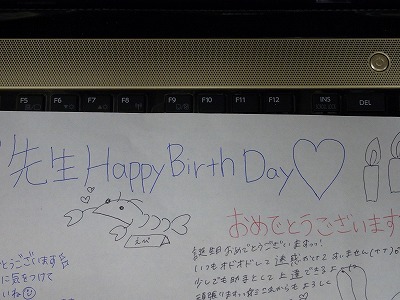 F5 F6 F7 F8 F9 F10 F11 F12 INS DEL
先生 Happy Birth Day♡
えび
おめでとうございます
とうございます
に気をつけて
いね
誕生日おめでとうございますッ!
いつもオドオドして迷惑かけてすいません(++)
少しでも助手として上達できるよ
頑張りますッ☆これからもよろし